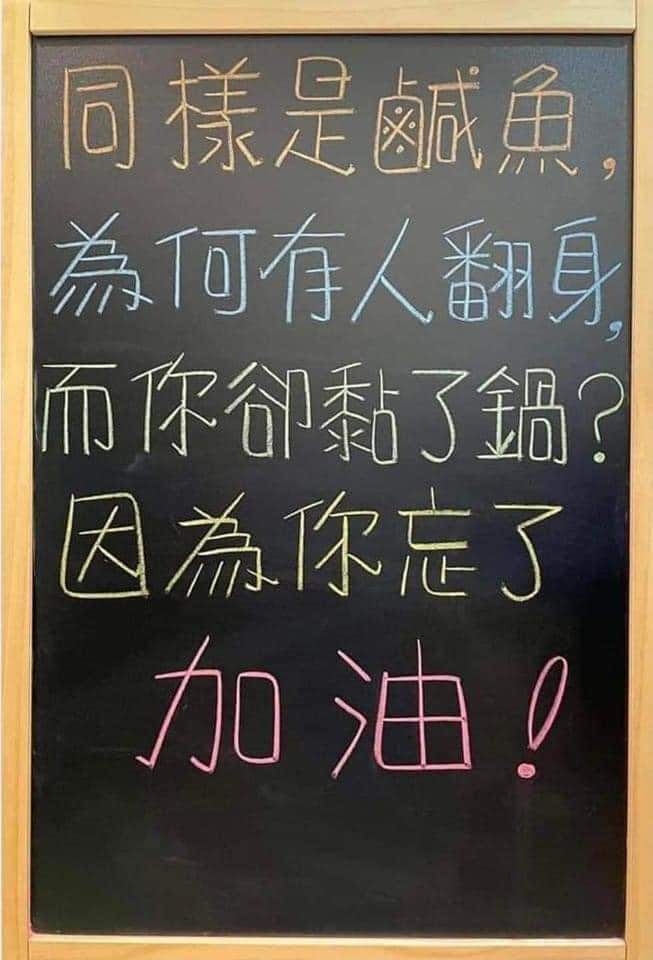 同樣是鹹魚,
為何有人翻身,
而你卻黏了鍋?
因為你忘了
加油!